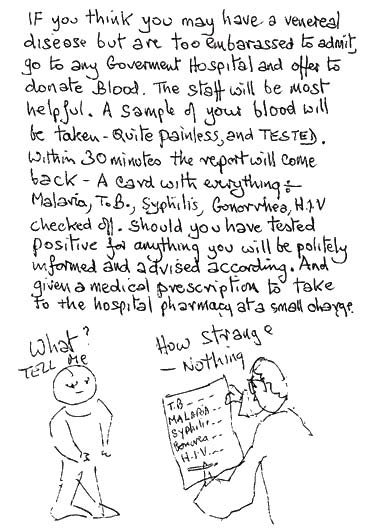 IF you think you may have a venereal
disease but are too embarassed to admit,
go to any Goverment Hospital and offer to
donate Blood. The staff will be most
helpful. A sample of your blood will
be taken - Quite painless, and TESTED.
Within 30 minutes the report will come
back - A card with everything ÷
Malaria, T.B., Syphilis, Gonorrhea, H.I.V
checked off. Should you have tested
positive for anything you will be politely
informed and advised according. And
given a medical prescription to take
to the hospital pharmacy at a small charge.
What?
TELL Me
How Strange
- Nothing
T.B - - -
MALARIA - -
Syphilis - -
Gonorea - -
H.I.V - - -